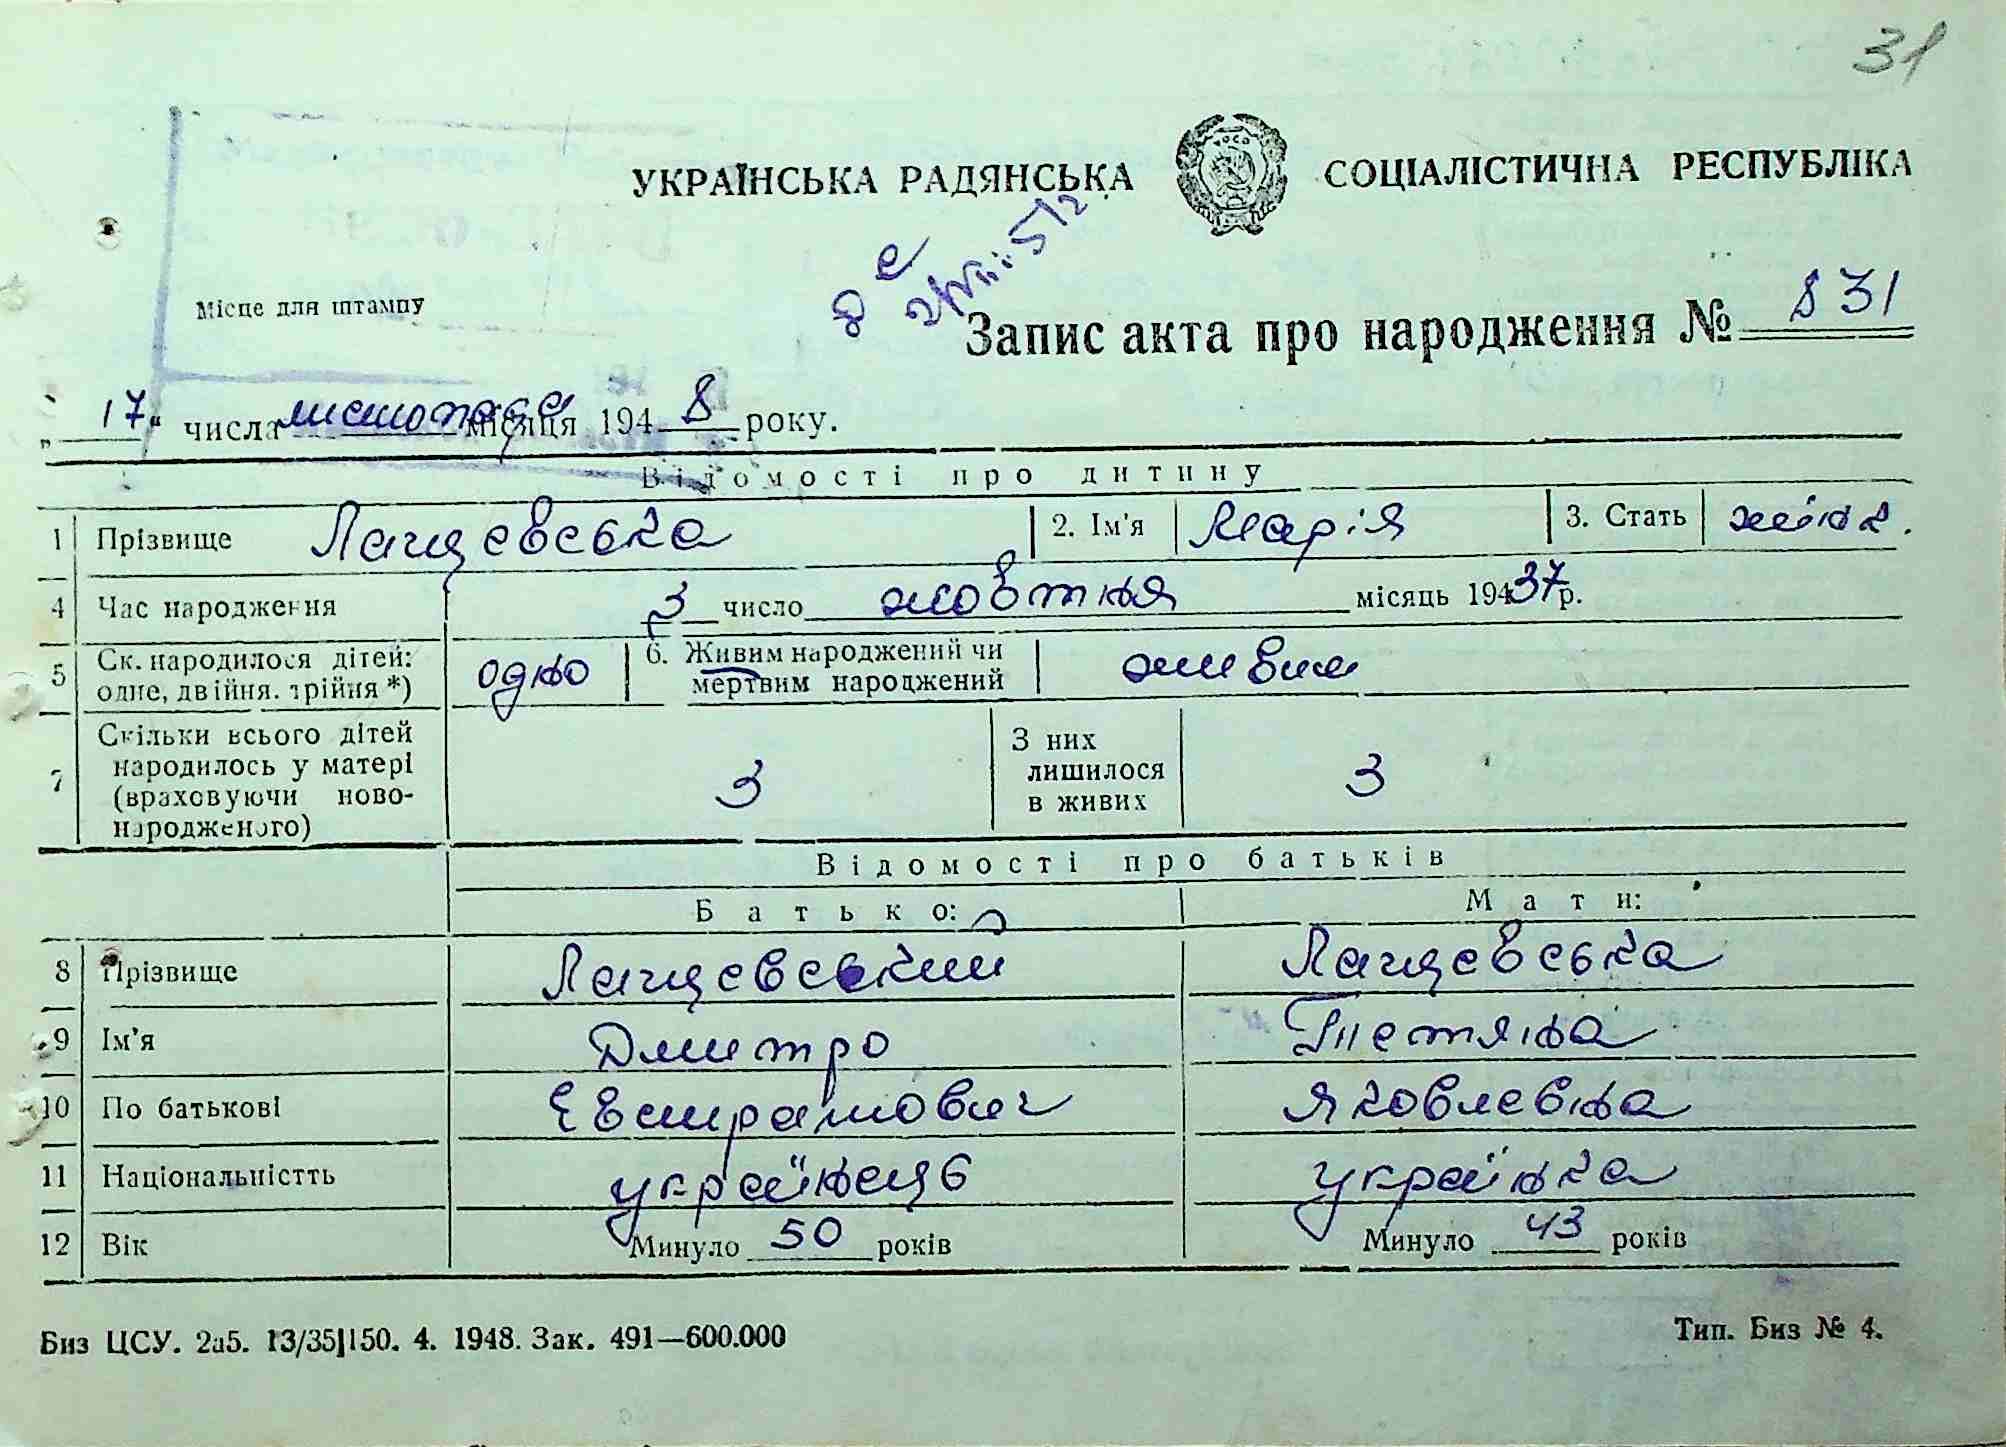 31
УКРАЇНСЬКА РАДЯНСЬКА СОЦІАЛІСТИЧНА РЕСПУБЛІКА
Місце для штампу
Запис акта про народження № 831
„17“ числа листопада місяця 1948 року.
Відомості про дитину
1 Прізвище Лащевська 2. Ім'я Марія 3. Стать жіноч.
4 Час народження 3 число жовтня місяць 19437р.
5 Ск. народилося дітей: одне, двійня. трійня *) одно 6. Живим народжений чи мертвим народжений живим
7 Скільки всього дітей народилось у матері (враховуючи ново-народженого) 3 З них лишилося в живих 3
Відомості про батьків
Батько: Мати:
8 Прізвище Лащевський Лащевська
9 Ім'я Дмитро Тетяна
10 По батькові Яковлевна
11 Національністть українець українка
12 Вік Минуло 50 років Минуло 43 років
Биз ЦСУ. 2а5. 13/35|150. 4. 1948. Зак. 491—600.000 Тип. Биз № 4.